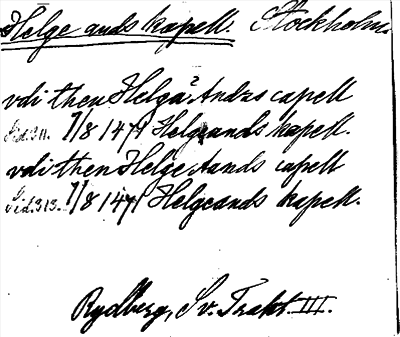 Helge ands kapell. Stockholm.
vdi then Helgaͣ Andzs capell
Sid. 311. 7/8 1471 Helgeands kapell.
vdi then Helge Aands capell
Sid. 313. 7/8 1471 Helgeands kapell.
Rydberg, Sv. Trakt. III.